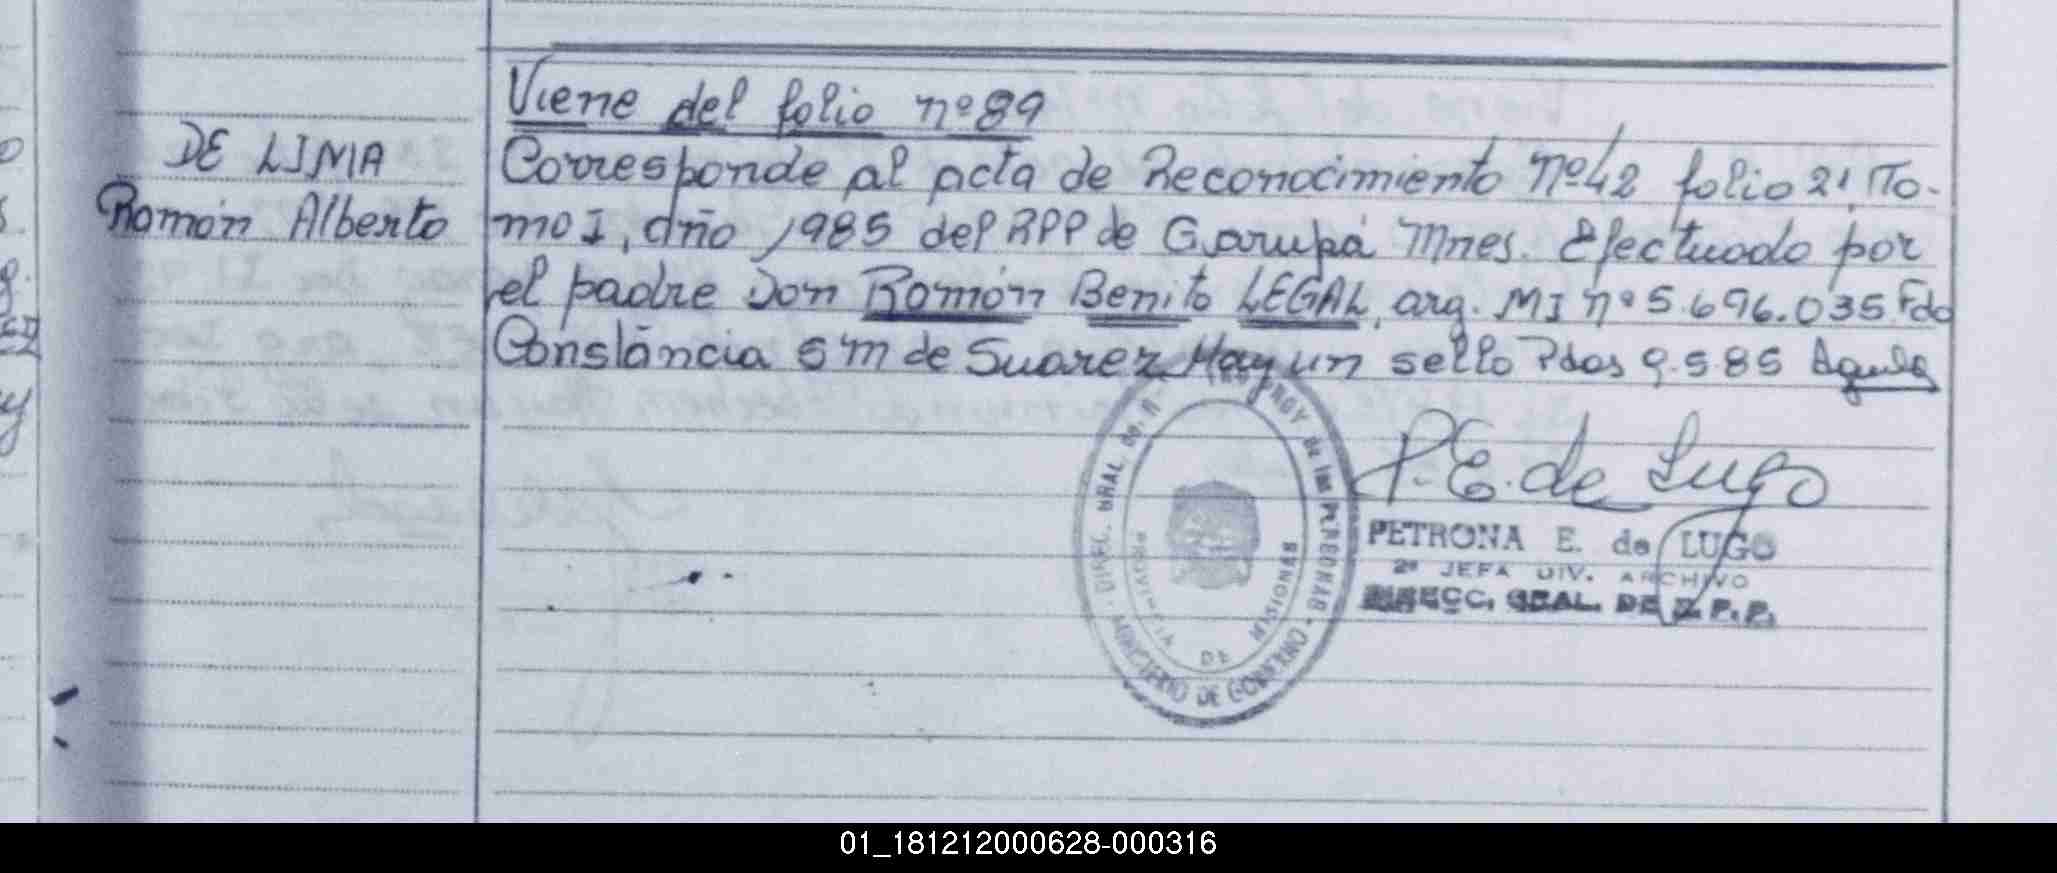 Viene del folio nº 89
DE LIMA
Ramón Alberto
Corresponde al acta de Reconocimiento nº 42 folio 21, To-
mo I, año 1985 del RPP de Garupá Mnes. Efectuado por
el padre Don Ramón Benito LEGAL, arg. MI nº 5.696.035 Fdo
Constância S M de Suarez Hay un sello Pdas 9.5.85
P. E. de Lugo
PETRONA E. de LUGO
2ª JEFA DIV. ARCHIVO
DIRECC. GRAL. DE R. P. P.
DIREC. GRAL de de las PERSONAS
PROVINCIA DE MISIONES
MINISTERIO DE GOBIERNO
01_181212000628-000316